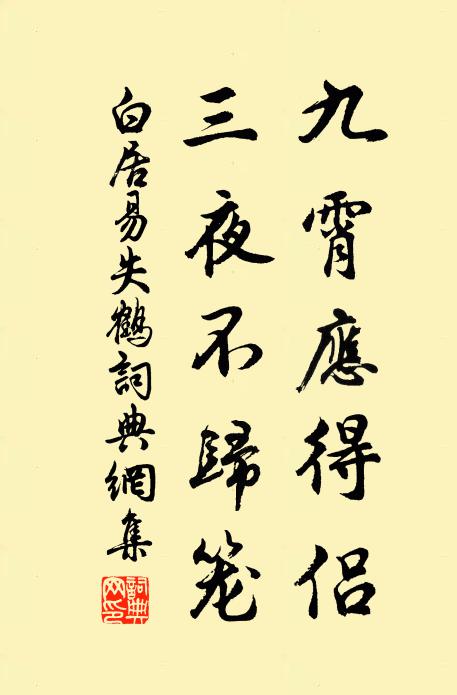 九霄應得侶
三夜不歸笼
白居易失鶴詞典網集
詞典網印